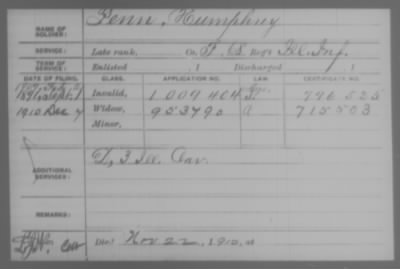 NAME OF SOLDIER: Penn, Humphrey
SERVICE: Late rank, Co. F, Reg't Ill. Inf.
TERM OF SERVICE: Enlisted , 1 Discharged , 1
DATE OF FILING. CLASS. APPLICATION NO. LAW CERTIFICATE NO.
1891, Sept. 1 Invalid, 1.009.404
1910 Dec 7 Widow, 953790 715503
Minor,
ADDITIONAL SERVICES: L, 3 Ill. Cav.
REMARKS:
Died Nov 22, 1910, at